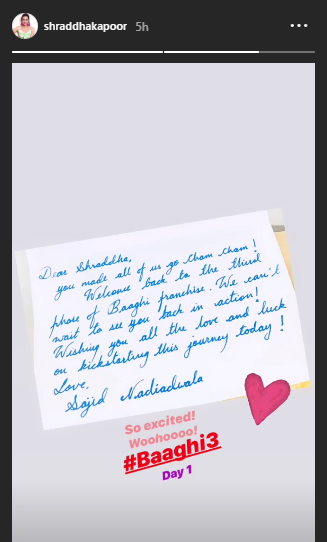 shraddhakapoor 5h
Dear Shraddha,
you made all of us go Cham Cham!
Welcome back to the third
phase of Baaghi franchise. We can't
wait to see you back in action!
Wishing you all the love and luck
on kickstarting this journey today!
Love,
Sajid Nadiadwala
So excited!
Woohoooo!
#Baaghi3
Day 1